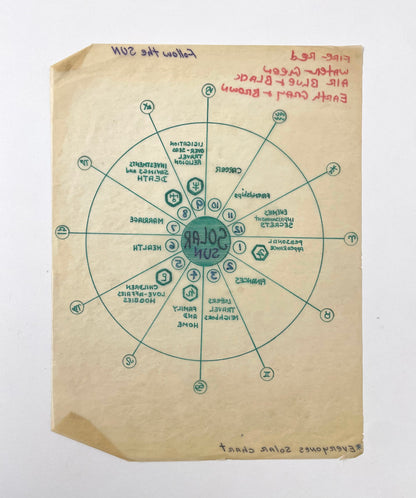 Follow the SUN
FIRE - Red
WATER - Green
AIR Blue + BLACK
EARTH GRAY + BROWN
LIGICATION
OVER-SEAS
TRAVEL
RELIGION
CAREER
Friendships
INVESTMENTS
SAVINGS and
DEATH
ENEMIES
IMPRISONMENT
SECRETS
MARRIAGE
PERSONAL
APPEARANCE
HEALTH
10
9
11
8
12
7
SOLAR
SUN
1
6
2
5
3
4
FINANCES
CHILDREN
LOVE-AFFAIRS
HOBBIES
TRAVEL
NEIGHBORS
FAMILY
AND
HOME
*Everyones Solar chart